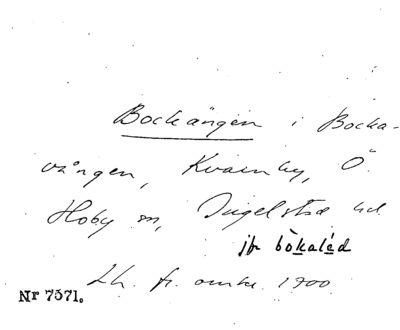 Bockängen i Bocka-
vången, Kvarnby, Ö.
Hoby sn, Ingelstad hd
jfr bòkaléd
Lh. fr. omkr. 1700
Nr 7371.